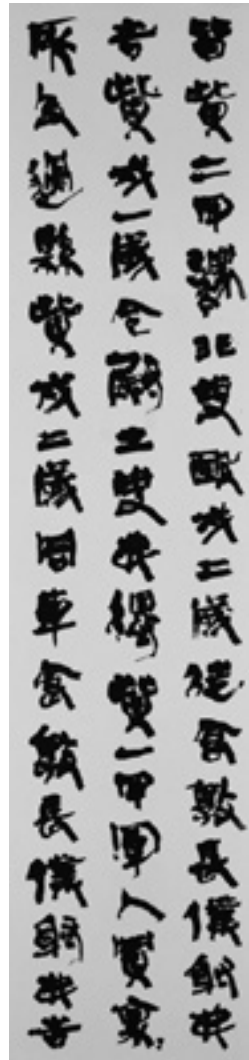 皆貲二甲灋非吏殹戍二歲徒食敦長僕射弗
告貲戍一歲令尉士吏弗得貲一甲軍人買稟=
所及過縣貲戍二歲同車食敦長僕射弗告